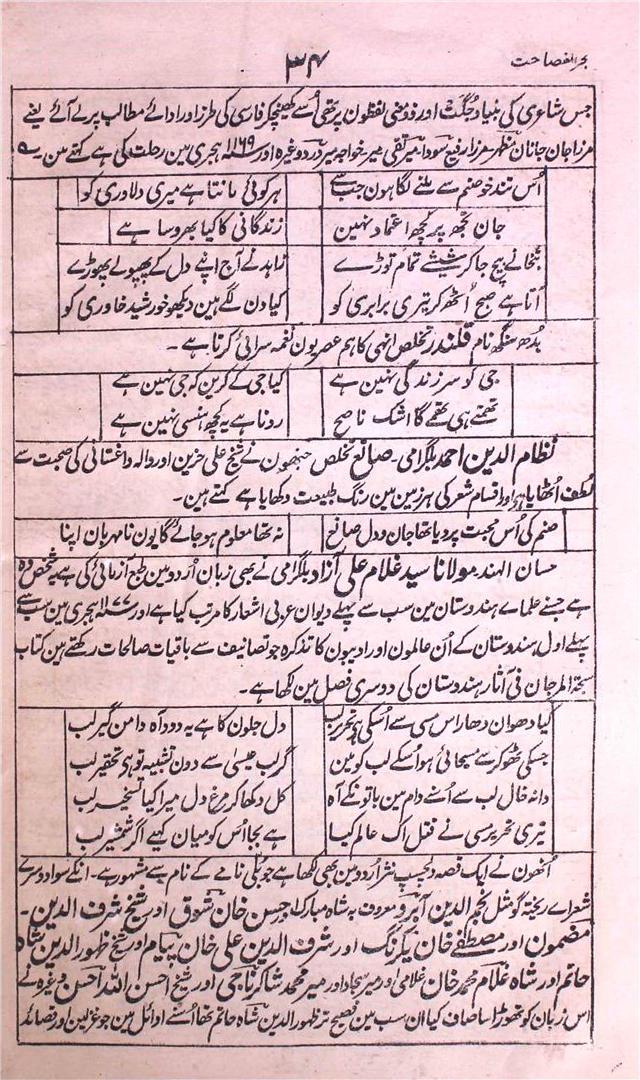 بحر الفصاحت
۳۴
جس شاعری کی بنیاد جگت اور ذو معنی لفظون پر تھی اُسے کھینچکر فارسی کی طرز اور ادائے مطالب پر لے آئے یعنے
مرزا جان جانان مظہر مرزا رفیع سودا میر تقی میر خواجہ میر درد وغیرہ اور ۱۱۶۹ ہجری مین رحلت کی ہے کہتے مین۔
اُس تند خو صنم سے ملنے لگا ہون جب سے ہر کوئی مانتا ہے میری دلاوری کو
جان تجھ پر کچھ اعتماد نہین زندگانی کا کیا بھروسا ہے
بتخانے بیچ جا کر شیشے تمام توڑے زاہد نے آج اپنے دل کے پھپولے پھوڑے
آتا ہے صبح اُٹھ کر تیری برابری کو کیا دن لگے ہین دیکھو خورشید خاوری کو
بدھ سنگھ نام قلندر تخلص انہی کا ہم عصر یون نغمہ سرائی کرتا ہے۔
جی کو سر زندگی نہین ہے کیا جی کے کرین کہ جی نہین ہے
تھمتے ہی تھمے گا اشک ناصح رونا ہے یہ کچھ ہنسی نہین ہے
نظام الدین احمد بلگرامی۔ صانع تخلص جنھون نے شیخ علی حزین اور والہ داغستانی کی صحبت سے
لطف اُٹھایا ہے اور اقسام شعر کی ہر زمین مین رنگ طبیعت دکھایا ہے کہتے ہین۔
صنم کی اُس محبت پر دیا تھا جان و دل صانع نہ تھا معلوم ہو جائے گا یون نامہربان اپنا
حسان الہند مولانا سید غلام علی آزاد بلگرامی نے بھی زبان اُردو مین طبع آزمائی کی ہے یہ شخص وہ
ہے جسنے علماے ہندوستان مین سب سے پہلے دیوان عربی اشعار کا مرتب کیا ہے اور ۱۱۷۷ ہجری مین سب سے
پہلے اول ہندوستان کے اُن عالمون اور ادیبون کا تذکرہ جو تصانیف سے باقیات صالحات رکھتے ہین کتاب
سبحۃ المرجان فی آثار ہندوستان کی دوسری فصل مین لکھا ہے۔
کیا دھوان دھار اس مسی سے اُسکی ہے تحریر لب دل جلون کا ہے یہ دود آہ دامن گیر لب
جسکی ٹھوکر سے مسیحائی ہو اُسکے لب کو مین گر لب عیسیٰ سے دون تشبیہ تو ہی تحقیر لب
دانہ خال لب سے اُسنے دام مین با تونکے آہ کل دکھا کر مرغ دل میرا کیا تسخیر لب
تیری تحریر مسی نے قتل اک عالم کیا ہے بجا اُس کو میان کہیے اگر شمشیر لب
اُنھون نے ایک قصہ دلچسپ نثر اُردو مین بھی لکھا ہے جو بلی نامے کے نام سے مشہور ہے۔ انکے سوا دوسرے
شعراے ریختہ گو مثل نجم الدین آبرو معروف بہ شاہ مبارک اور حسن خان شوق اور شیخ شرف الدین۔
مضمون اور مصطفےٰ خان یکرنگ اور شرف الدین علی خان پیام اور شیخ ظہور الدین شاہ
حاتم اور شاہ غلام محمد خان غلامی اور میر سجاد اور میر محمد شاکر ناجی اور شیخ احسن اللہ احسن وغیرہ نے
اس زبان کو تھوڑا سا صاف کیا ان سب مین فصیح تر ظہور الدین شاہ حاتم تھا اُسنے اوائل مین جو غزلین اور قصائد